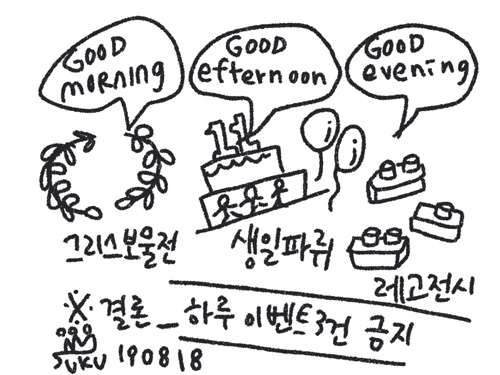 GOOD
MORNING
GOOD
efternoon
GOOD
evening
11
그리스보물전
생일파뤼
레고전시
※ 결론_하루 이벤트3건 금지
SUKU 190818